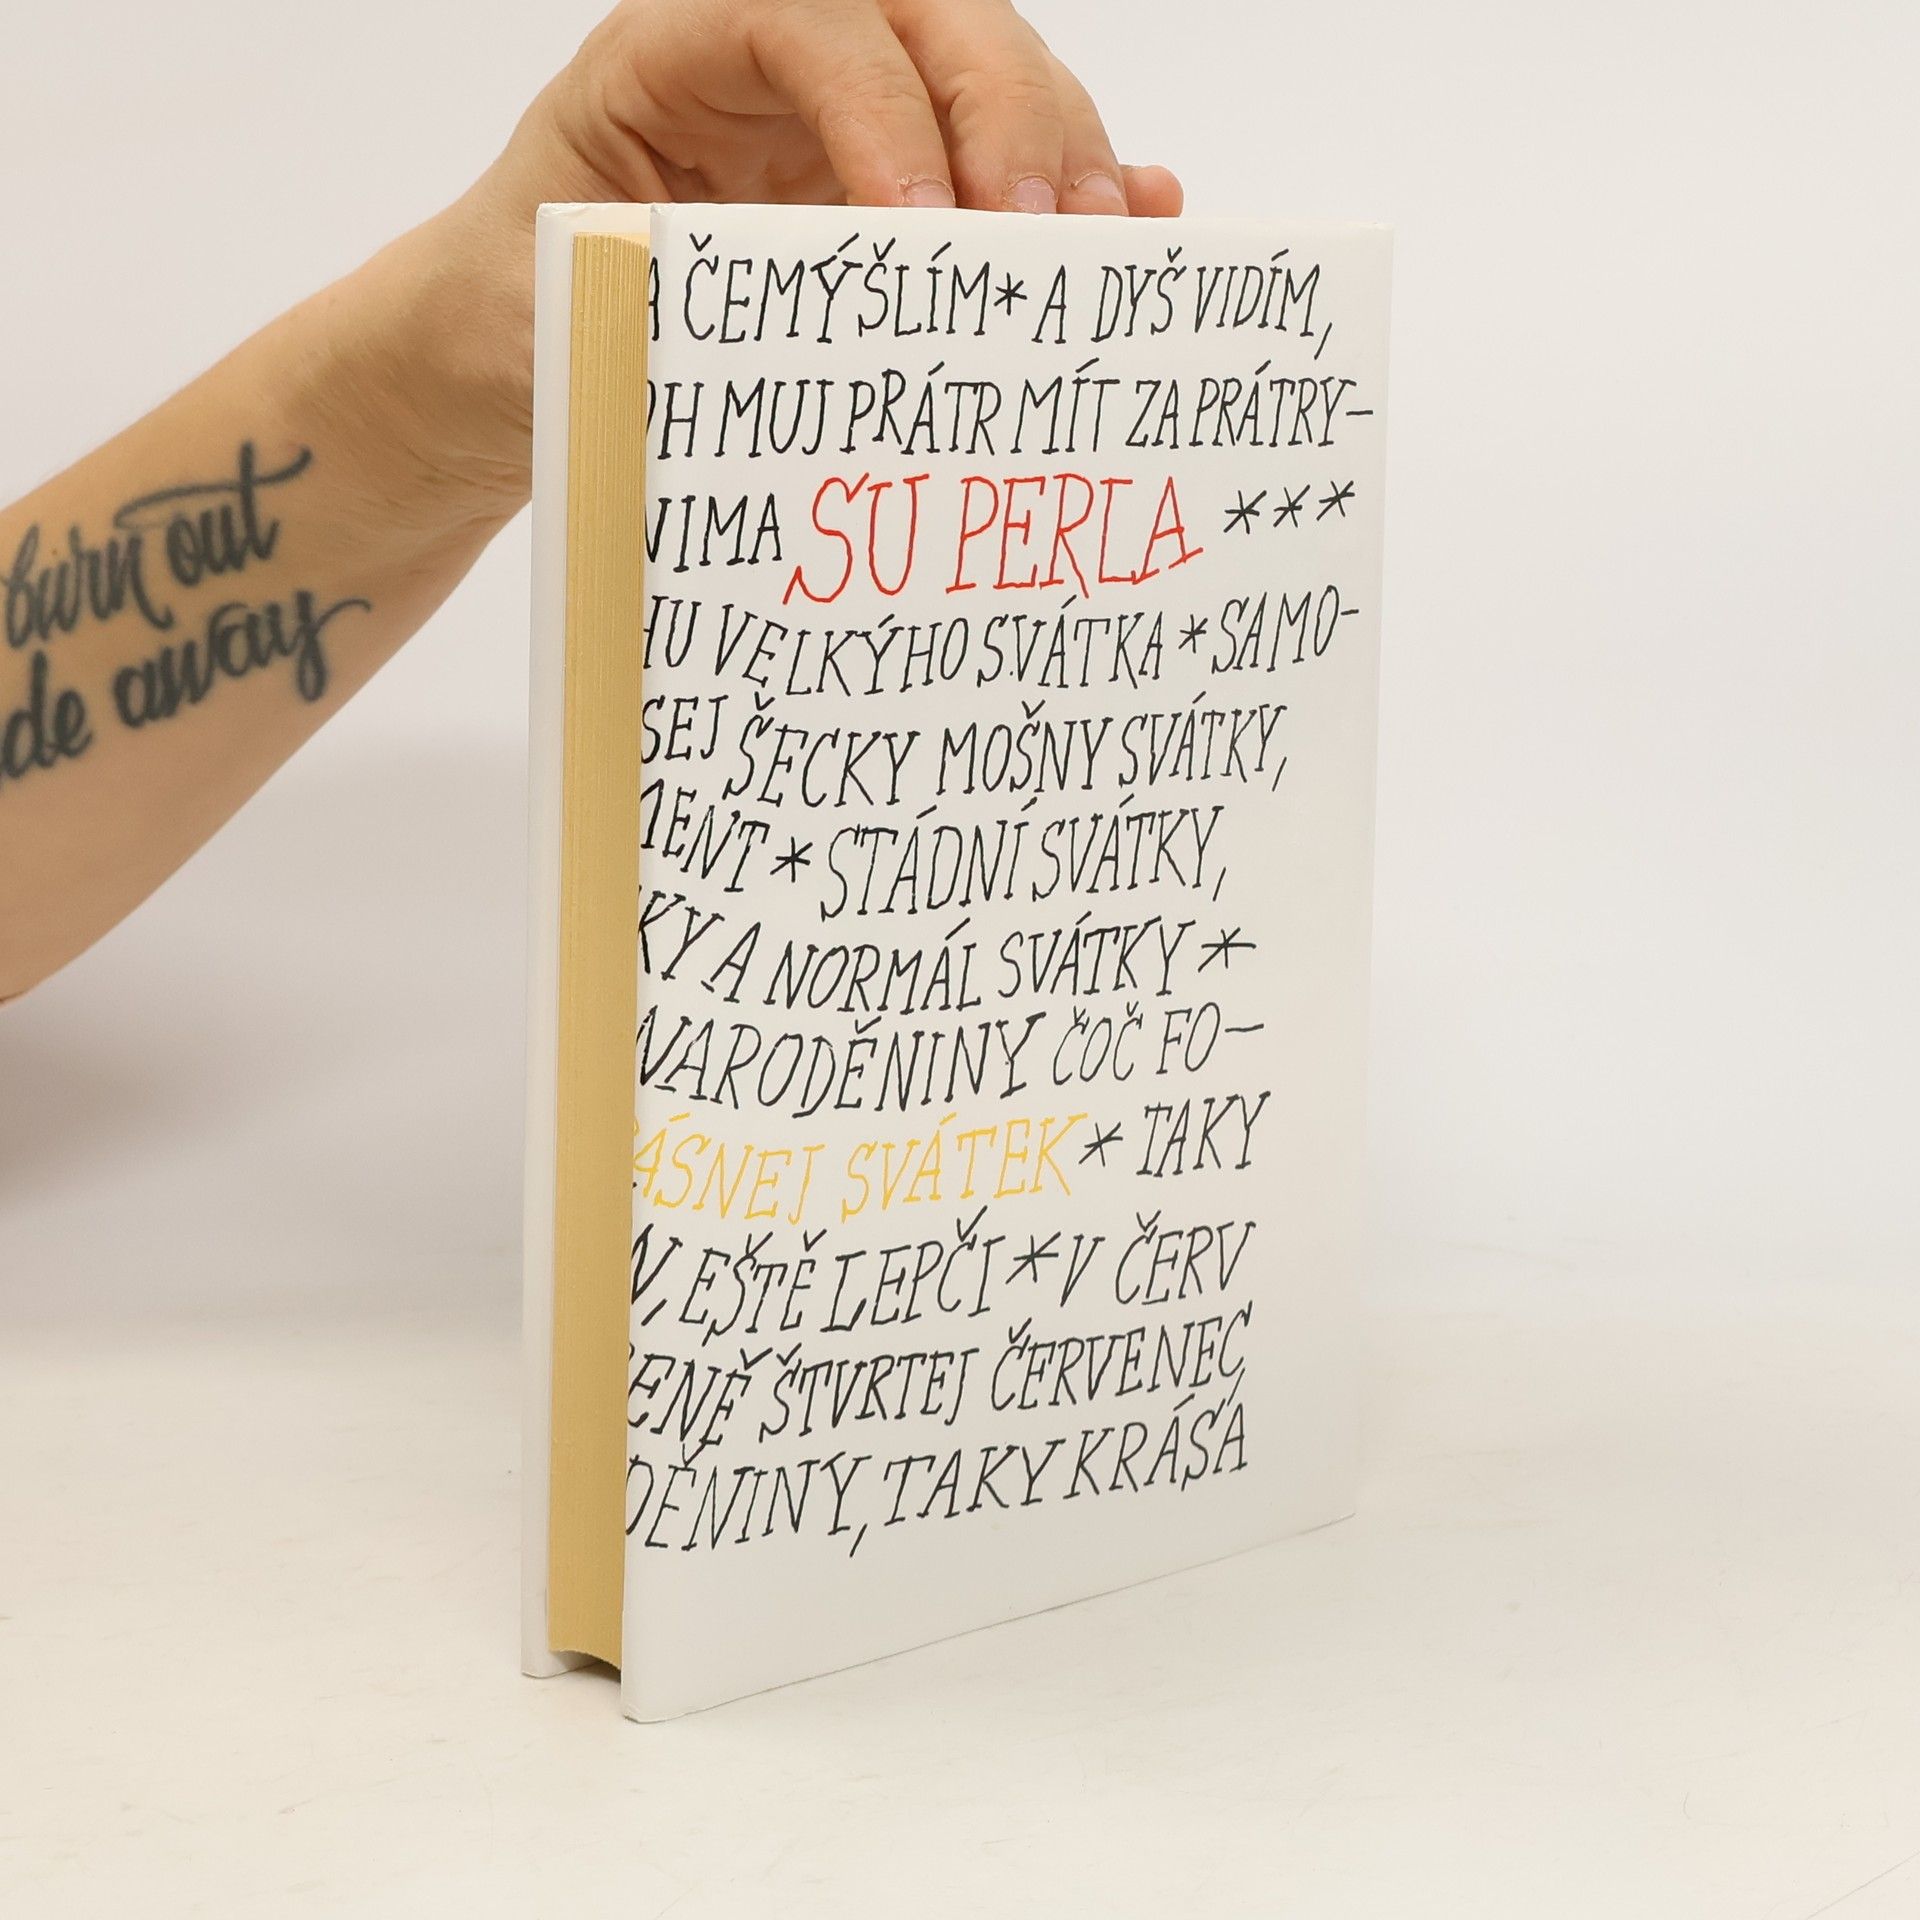 burn out
de away
A ČEMÝŠLÍM * A DYŠ VIDÍM,
OH MUJ PRÁTR MÍT ZA PRÁTRY-
NIMA SU PERLA ***
HU VELKÝHO SVÁTKA * SAMO-
SEJ ŠECKY MOŠNY SVÁTKY,
MENT * STÁDNÍ SVÁTKY,
KY A NORMÁL SVÁTKY *
NARODĚNINY ČOČ FO-
ÁSNEJ SVÁTEK * TAKY
N, EŠTĚ LEPČI * V ČERV
ENĚ ŠTVRTEJ ČERVENEC,
DĚNINY, TAKY KRÁSÁ